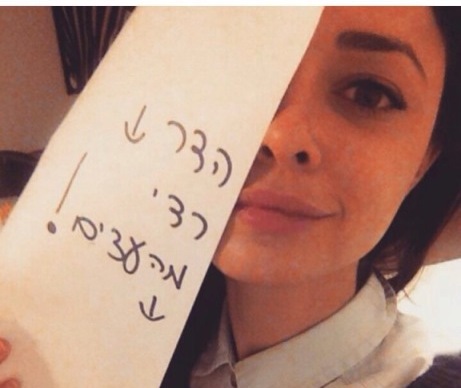 הדר ↓
רדי
מהעצים!
↓